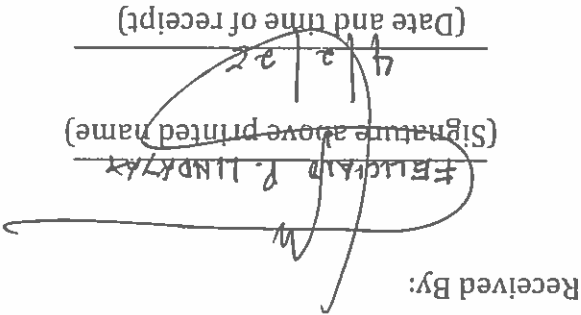 Received By:
FELICIANO P.
(Signature above printed name)
4 | 2 |
(Date and time of receipt)